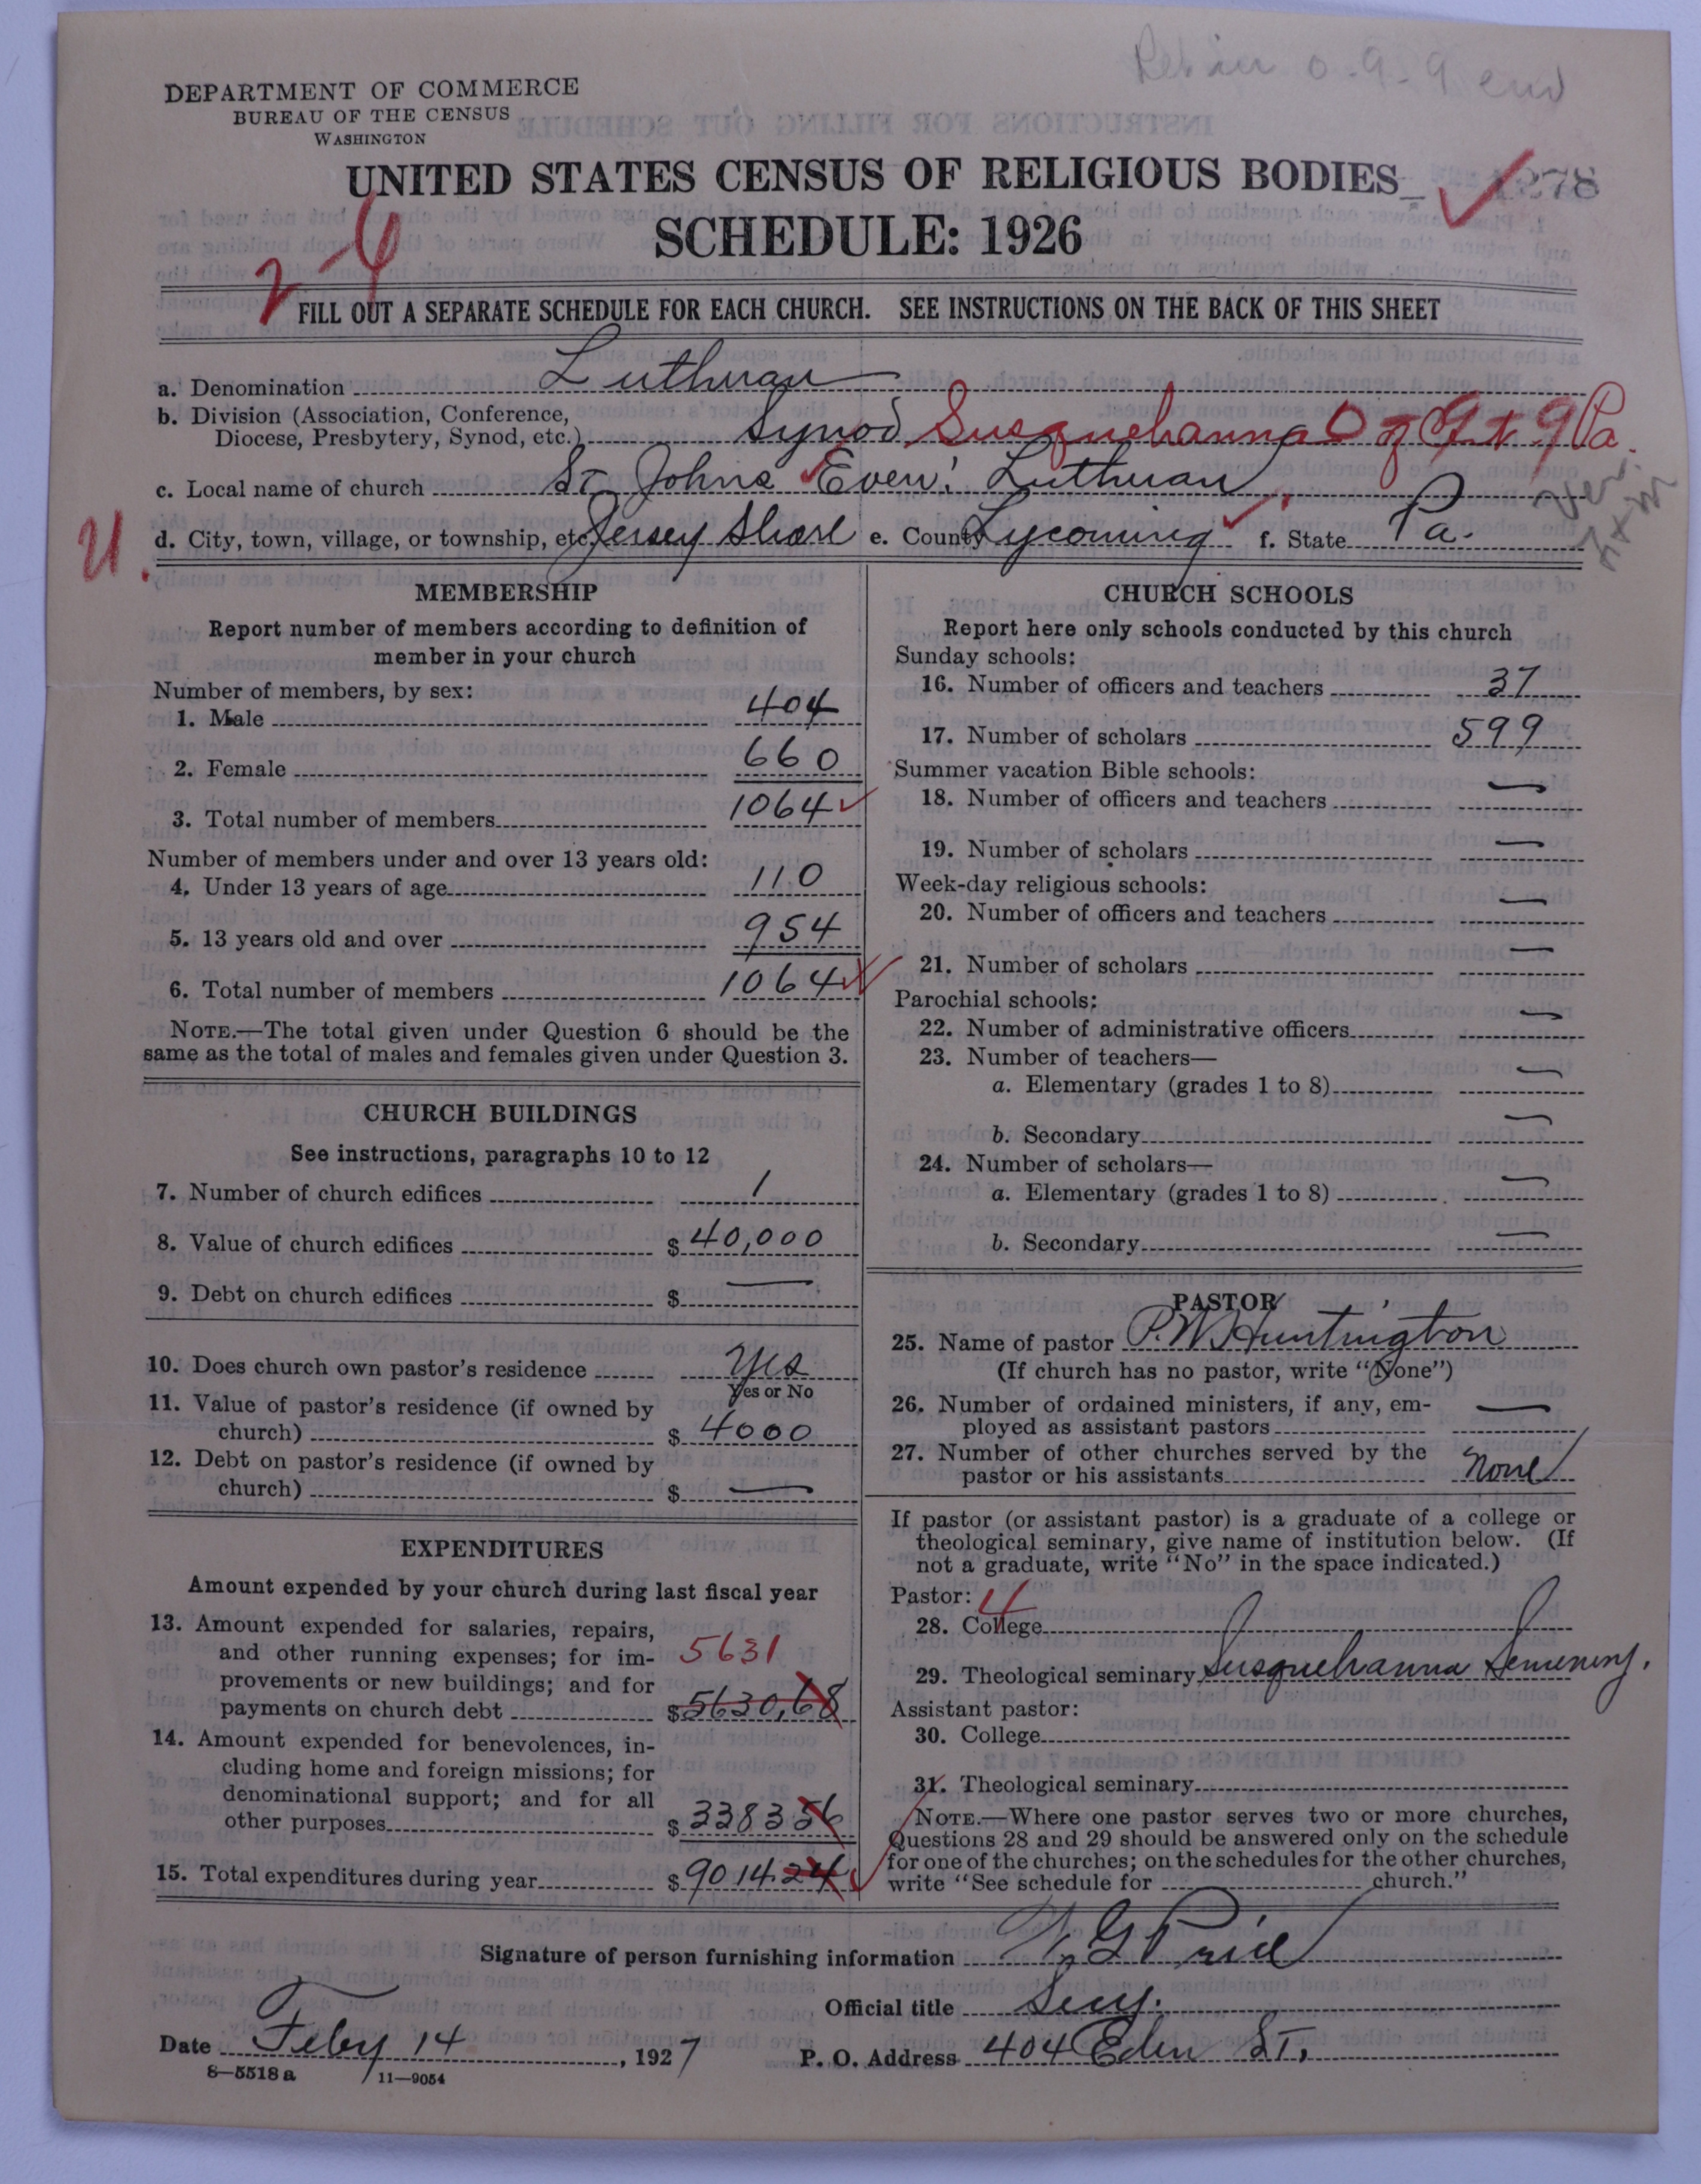 DEPARTMENT OF COMMERCE
BUREAU OF THE CENSUS
WASHINGTON
UNITED STATES CENSUS OF RELIGIOUS BODIES
1278
SCHEDULE: 1926
FILL OUT A SEPARATE SCHEDULE FOR EACH CHURCH. SEE INSTRUCTIONS ON THE BACK OF THIS SHEET
a. Denomination Lutheran
b. Division (Association, Conference,
Diocese, Presbytery, Synod, etc.) Synod Susquehanna O of Pa.
c. Local name of church St Johns Even. Lutheran
U.
d. City, town, village, or township, etc. Jersey Shore e. County Lycoming f. State Pa.
MEMBERSHIP
Report number of members according to definition of
member in your church
Number of members, by sex:
1. Male 404
2. Female 660
3. Total number of members 1064
Number of members under and over 13 years old:
4. Under 13 years of age 110
5. 13 years old and over 954
6. Total number of members 1064
NOTE.—The total given under Question 6 should be the
same as the total of males and females given under Question 3.
CHURCH BUILDINGS
See instructions, paragraphs 10 to 12
7. Number of church edifices 1
8. Value of church edifices $ 40,000
9. Debt on church edifices $ —
10. Does church own pastor's residence Yes
Yes or No
11. Value of pastor's residence (if owned by
church) $ 4000
12. Debt on pastor's residence (if owned by
church) $ —
EXPENDITURES
Amount expended by your church during last fiscal year
13. Amount expended for salaries, repairs,
and other running expenses; for im- 5631
provements or new buildings; and for
payments on church debt $ 5630,68
14. Amount expended for benevolences, in-
cluding home and foreign missions; for
denominational support; and for all
other purposes $ 3383 56
15. Total expenditures during year $ 9014.24
CHURCH SCHOOLS
Report here only schools conducted by this church
Sunday schools:
16. Number of officers and teachers 37
17. Number of scholars 599
Summer vacation Bible schools:
18. Number of officers and teachers —
19. Number of scholars —
Week-day religious schools:
20. Number of officers and teachers —
21. Number of scholars —
Parochial schools:
22. Number of administrative officers —
23. Number of teachers—
a. Elementary (grades 1 to 8) —
b. Secondary —
24. Number of scholars—
a. Elementary (grades 1 to 8) —
b. Secondary —
PASTOR
25. Name of pastor P. W. Huntington
(If church has no pastor, write "None")
26. Number of ordained ministers, if any, em-
ployed as assistant pastors —
27. Number of other churches served by the
pastor or his assistants None
If pastor (or assistant pastor) is a graduate of a college or
theological seminary, give name of institution below. (If
not a graduate, write "No" in the space indicated.)
Pastor: 4
28. College
29. Theological seminary Susquehanna Seminary.
Assistant pastor:
30. College
31. Theological seminary
NOTE.—Where one pastor serves two or more churches,
Questions 28 and 29 should be answered only on the schedule
for one of the churches; on the schedules for the other churches,
write "See schedule for church."
Signature of person furnishing information G Price
Official title Secy.
Date Feby 14, 1927 P. O. Address 404 Eden ST.
8—5518 a 11—9054